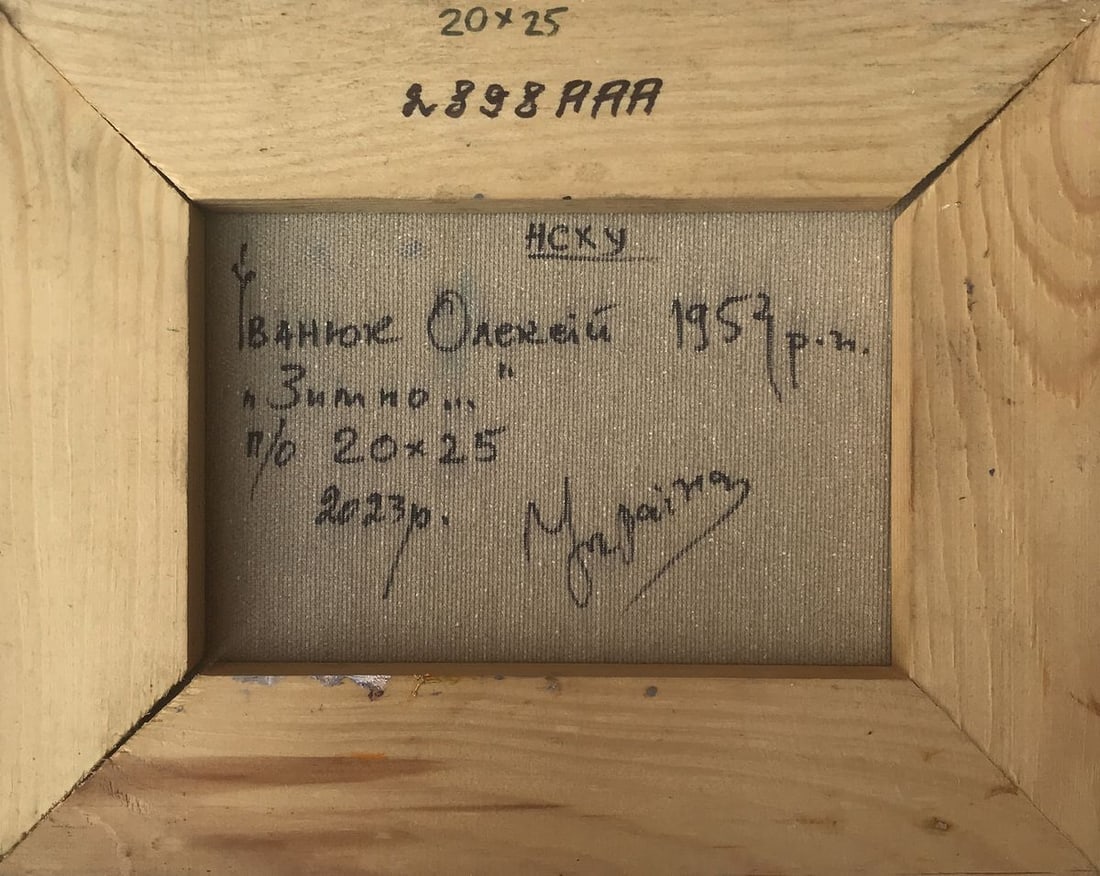 20×25
2898AAA
НСХУ
Іванюк Олексій 1957 р.н.
„Зимно..."
п/о 20×25
2023р. Україна